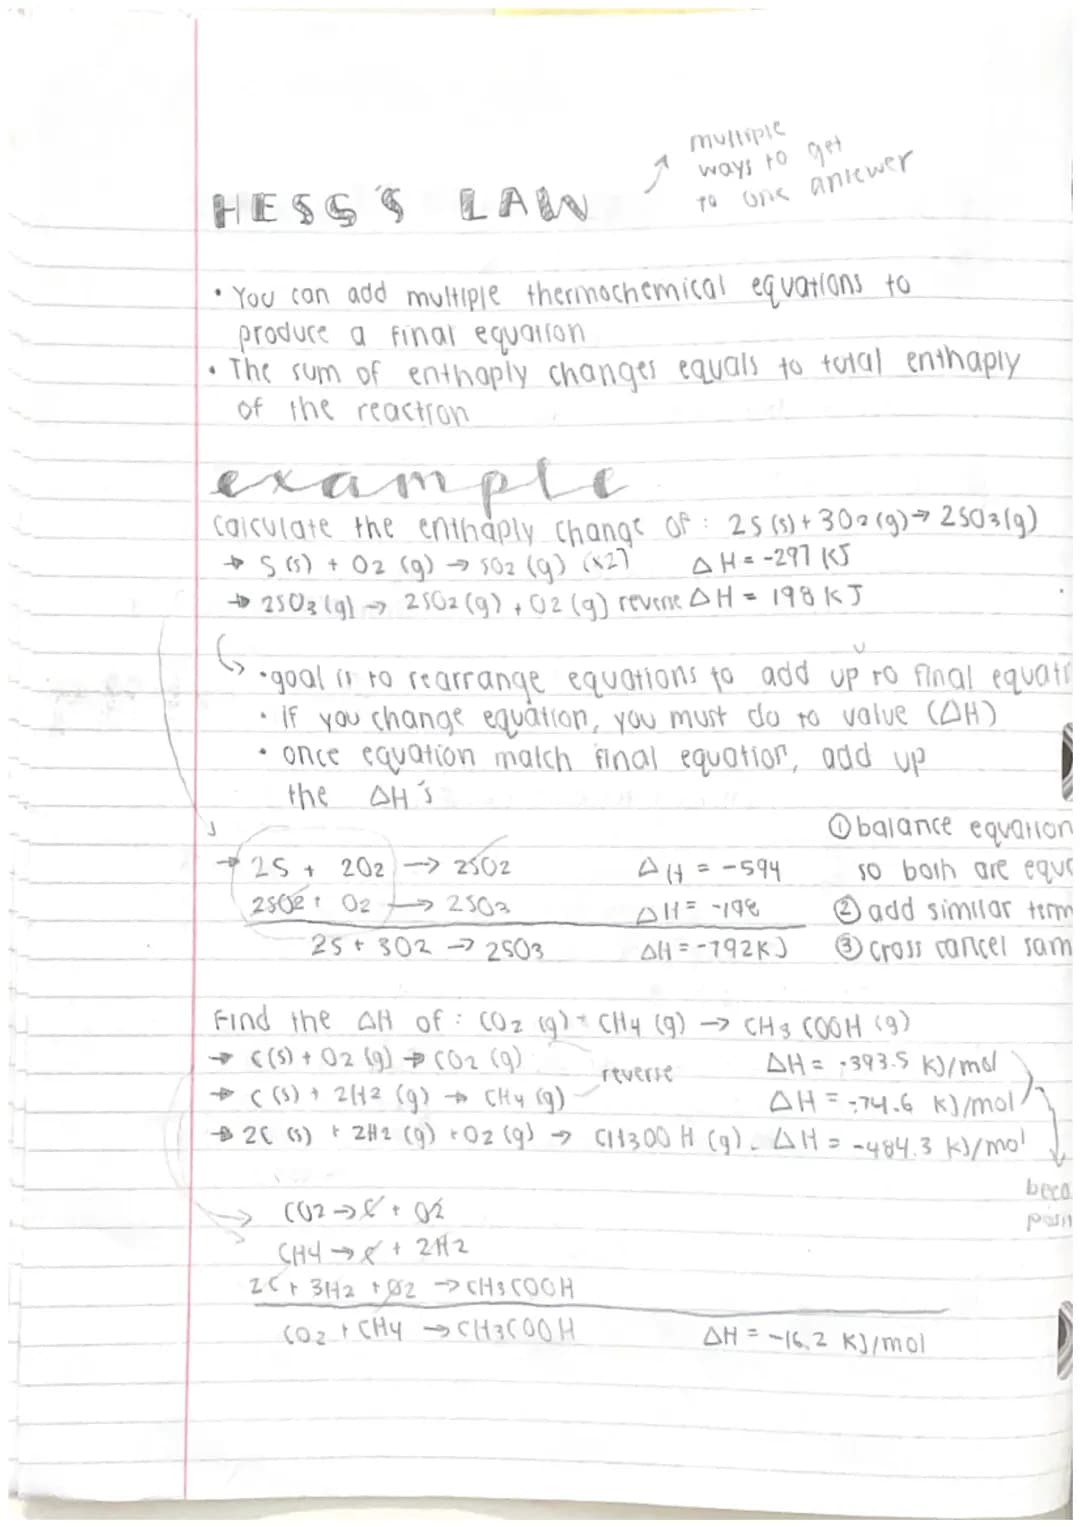 multiple
ways to get
to one answer
HESS'S LAW
• You can add multiple thermochemical equations to
produce a final equation
• The sum of enthaply changes equals to total enthaply
of the reaction
example
Calculate the enthaply change of : 2S (s) + 3O2 (g) → 2SO3 (g)
→ S (s) + O2 (g) → SO2 (g) (x2) ΔH = -297 KJ
→ 2SO3 (g) → 2SO2 (g) + O2 (g) reverse ΔH = 198 KJ
• goal is to rearrange equations to add up to final equati
• if you change equation, you must do to value (ΔH)
• once equation match final equation, add up
the ΔH's
① balance equation
→ 2S + 2O2 → 2SO2 ΔH = -594 so both are equa
2SO2 + O2 → 2SO3 ΔH = -198 ② add similar term
2S + 3O2 → 2SO3 ΔH = -792KJ ③ cross cancel sam
Find the ΔH of : CO2 (g) + CH4 (g) → CH3COOH (g)
→ C(s) + O2 (g) → CO2 (g) reverse ΔH = -393.5 KJ/mol
→ C (s) + 2H2 (g) → CH4 (g) ΔH = -74.6 KJ/mol
→ 2C (s) + 2H2 (g) + O2 (g) → CH3OOH (g) ΔH = -484.3 KJ/mol
beca
CO2 → C + O2
CH4 → C + 2H2
2C + 3H2 + O2 → CH3COOH
CO2 + CH4 → CH3COOH ΔH = -16.2 KJ/mol